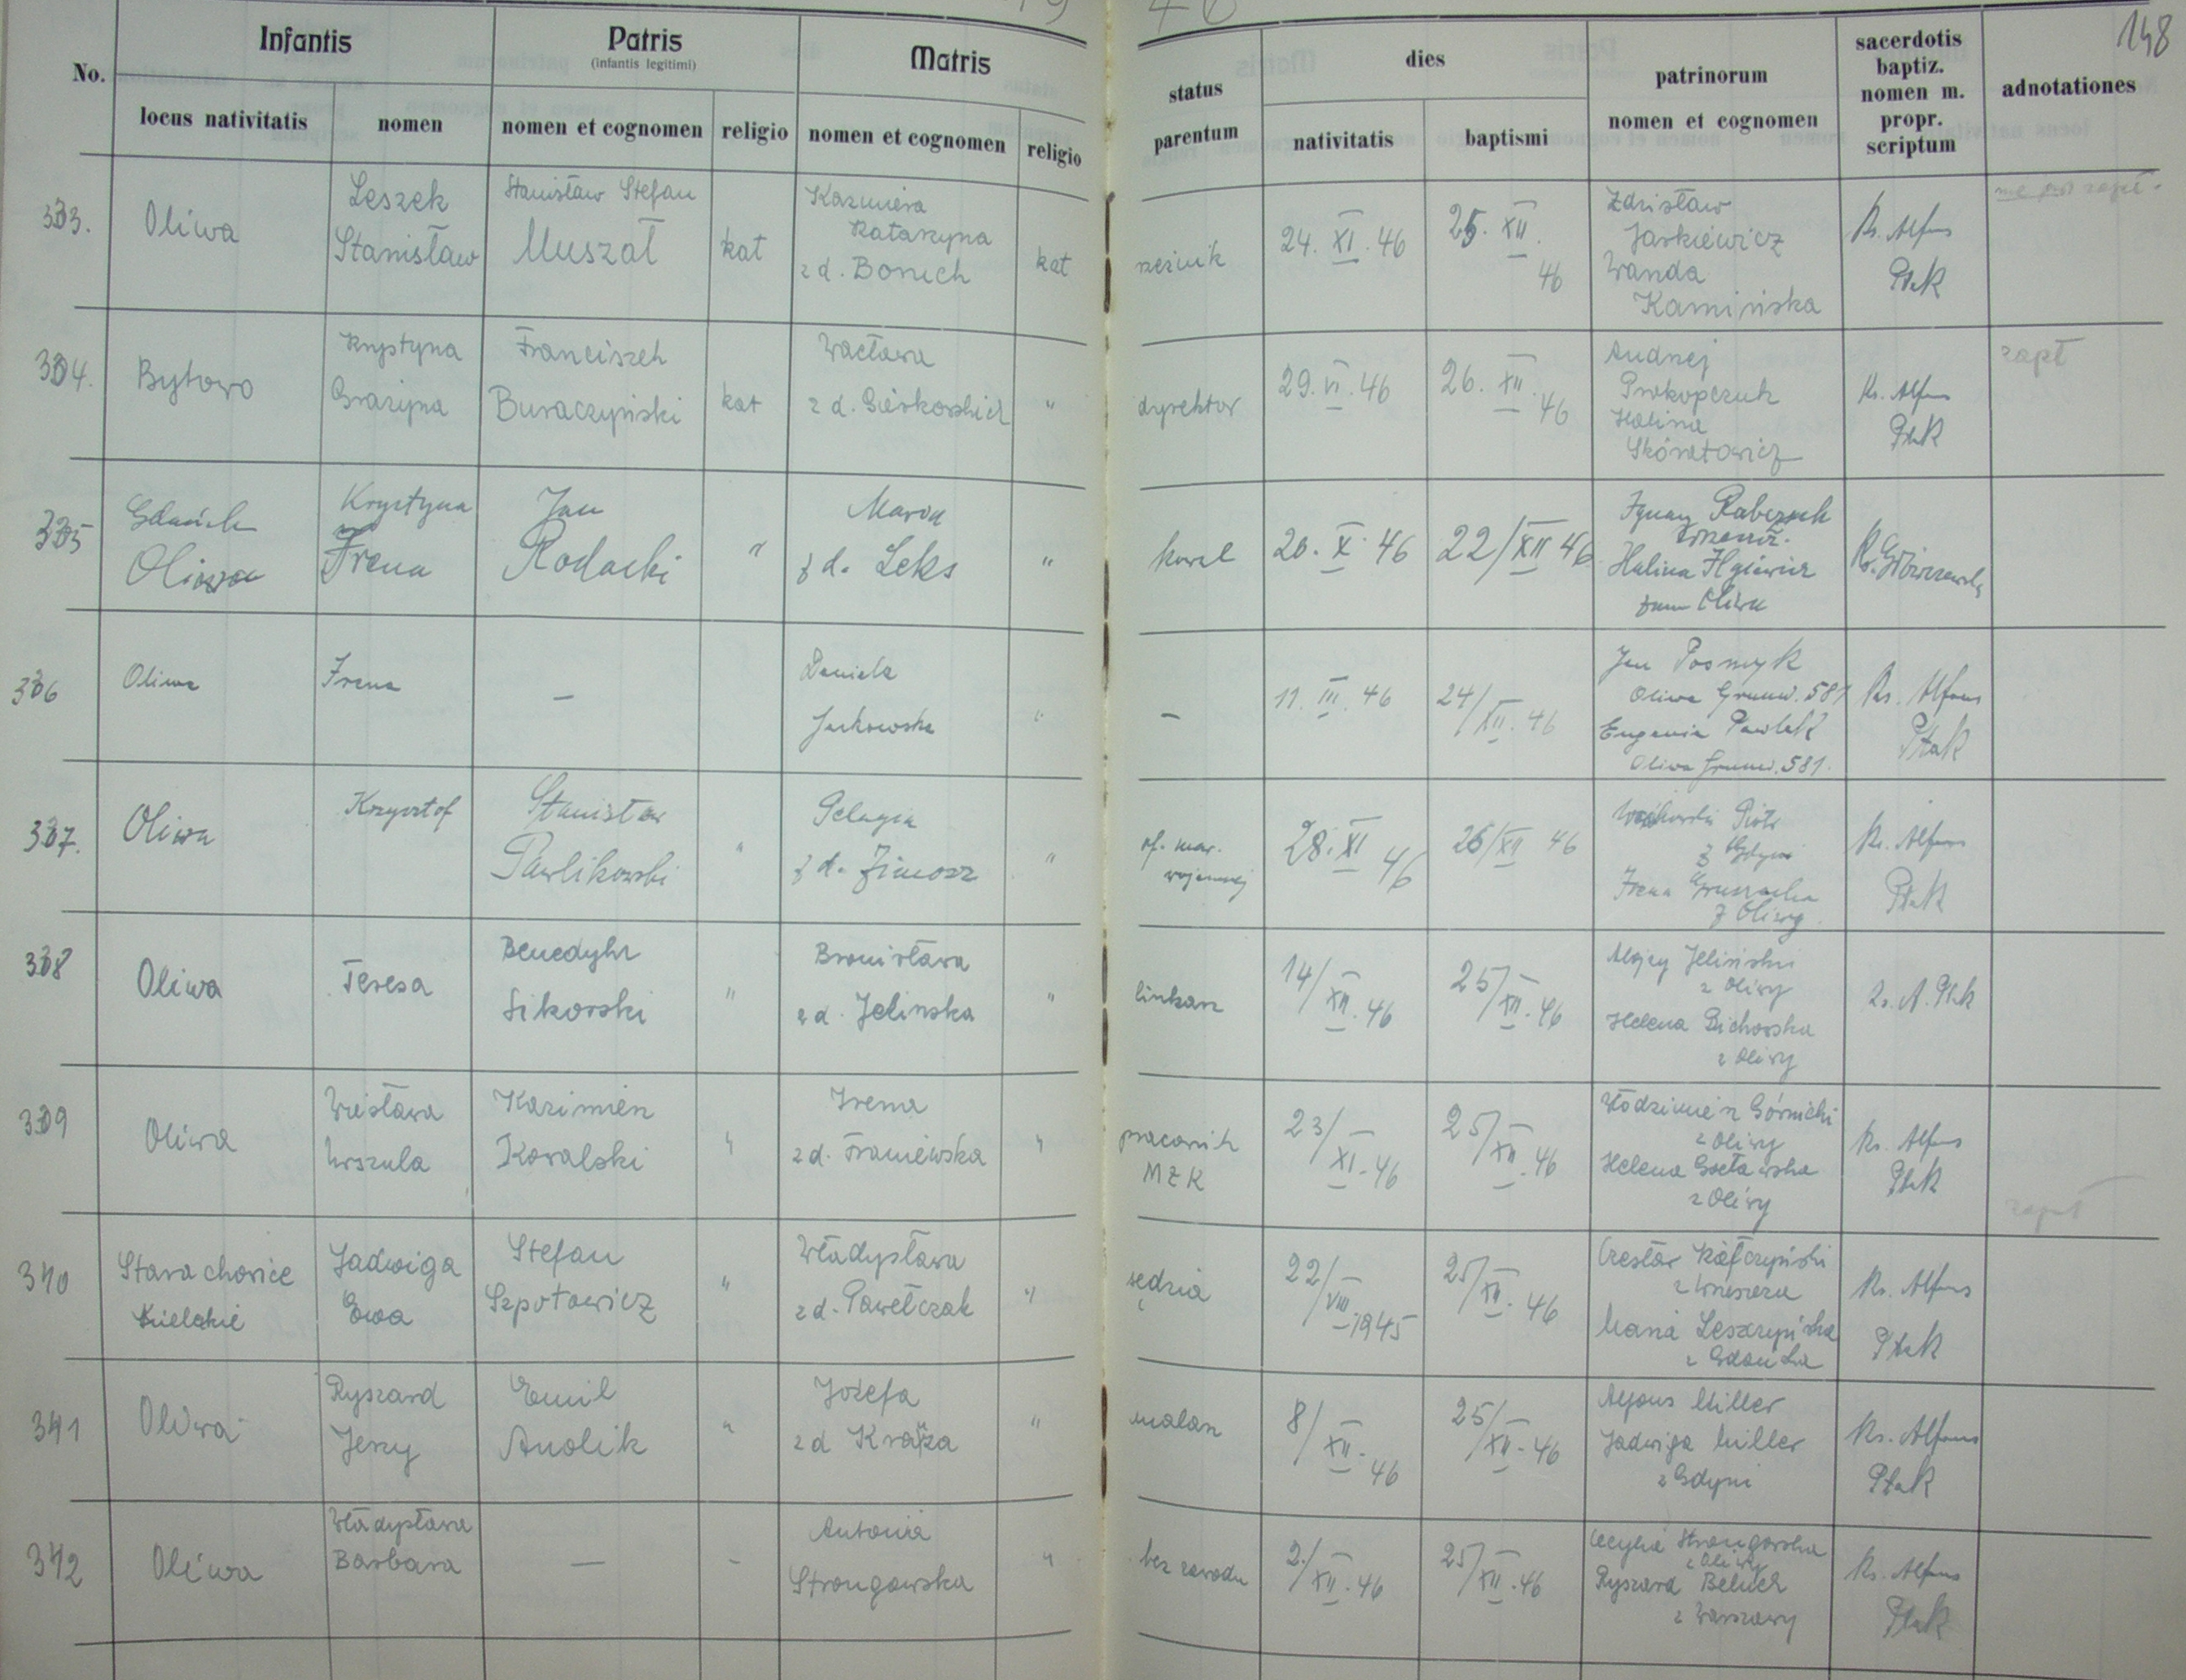 19 46
148
No.
Infantis
Patris
(infantis legitimi)
Matris
status parentum
dies
patrinorum
nomen et cognomen
sacerdotis
baptiz.
nomen m.
propr.
scriptum
adnotationes
locus nativitatis
nomen
nomen et cognomen
religio
nomen et cognomen
religio
nativitatis
baptismi
333.
Oliwa
Leszek
Stanisław
Stanisław Stefan
Muszał
kat
Kazimiera
Katarzyna
z d. Bonich
kat
rzeźnik
24. XI. 46
25. XII.
46
Zdzisław
Jaskiewicz
Wanda
Kamińska
Ks. Alfons
Ptak
334.
Bytowo
Krystyna
Grażyna
Franciszek
Buraczyński
kat
Wacława
"
dyrektor
29. VI. 46
26. XII.
46
Andrzej
Prokopczuk
Halina
Ks. Alfons
Ptak
zapł
335
Gdańsk
Oliwa
Krystyna
Irena
Jan
Rodacki
"
z d. Leks
"
kowal
20. X. 46
22/XII 46
Ignacy Rabczuk
Halina
Oliwa
336
Oliwa
Irena
—
Daniela
Jackowska
"
—
11. III. 46
24/XII. 46
Jan Posmyk
Oliwa Grunw. 581
Eugenia Pawlak
Oliwa Grunw. 581.
Ks. Alfons
Ptak
337.
Oliwa
Krzysztof
Stanisław
Pawlikowski
"
Pelagia
z d. Zimosz
"
of. mar.
wojennej
28. XI
46
26/XII 46
Piotr
z Gdyni
Irena Gruszecka
z Oliwy.
Ks. Alfons
Ptak
338
Oliwa
Teresa
Benedykt
Sikorski
"
Bronisława
z d. Jelinska
"
ślusarz
14/XII. 46
25/XII. 46
Alojzy Jeliński
z Oliwy
Helena
z Oliwy
Ks. A. Ptak
339
Oliwa
Wiesława
Urszula
Kazimierz
Kowalski
"
Irena
z d. Franiewska
"
pracownik
MZK
23/XI. 46
25/XII. 46
Włodzimierz Górnicki
z Oliwy
Helena
z Oliwy
Ks. Alfons
Ptak
340
Starachowice
Kieleckie
Jadwiga
Ewa
Stefan
Szpotowicz
"
Władysława
z d. Pawełczak
"
sędzia
22/VIII 1945
25/XII. 46
Czesław
z Wrzeszcza
Maria Leszczyńska
z Gdańska
Ks. Alfons
Ptak
zapł
341
Oliwa
Ryszard
Jerzy
Emil
Anolik
"
Józefa
z d
"
malarz
8/XII.
46
25/XII. 46
Alfons Miller
Jadwiga Miller
z Gdyni
Ks. Alfons
Ptak
342
Oliwa
Władysława
Barbara
—
-
Antonia
Strongowska
"
bez zawodu
2/XII. 46
25/XII. 46
Cecylia Strongowska
z Oliwy
Ryszard Beluch
z Warszawy
Ks. Alfons
Ptak